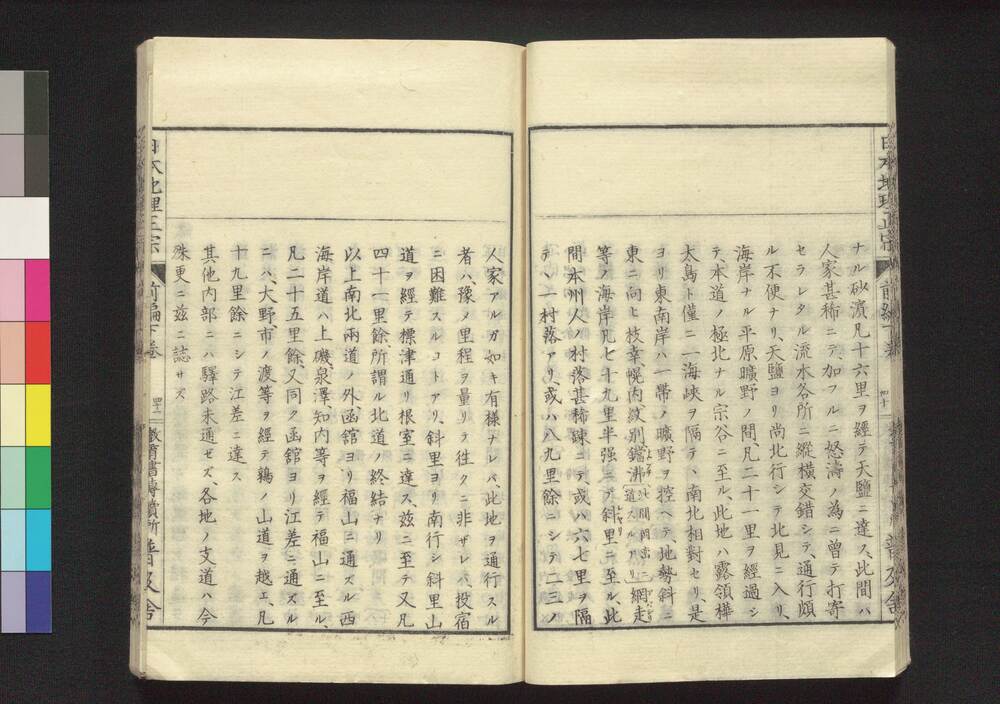 ナル砂濱凡十六里ヲ經テ天鹽ニ達ス、此間ハ
人家甚稀ニテ、加フルニ怒濤ノ為ニ曽テ打寄
セラレタル流木各所ニ縱横交錯シテ、通行頗
ル不便ナリ、天鹽ヨリ尚北行シテ北見ニ入リ、
海岸ナル平原、曠野ノ間、凡二十一里ヲ經過シ
テ、本道ノ極北ナル宗谷ニ至ル、此地ハ露領樺
太島ト僅ニ一海峽ヲ隔テ、南北相對セリ、是
ヨリ東南岸ハ一帶ノ曠野ヲ控ヘテ、地勢斜ニ
東ニ向ヒ枝幸、幌内、紋別、鐺沸網走
等ノ海岸凡七十九里半强ニテ斜里ニ至ル、此
間本州人ノ村落甚稀疎ニテ或ハ六七里ヲ隔
テヽ一村落アリ、或ハ八九里餘ニシテ二三ノ
日本地理正宗
前編下巻
四十
普及舎
人家アルガ如キ有樣ナレバ、此地ヲ通行スル
者ハ豫メ里程ヲ量リテ往クニ非ザレバ、投宿
ニ困難スルコトアリ、斜里ヨリ南行シ斜里山
道ヲ經テ標津通リ根室ニ達ス、茲ニ至テ又凡
四十一里餘、所謂ル北道ノ終結ナリ
以上南北兩道ノ外、函舘ヨリ福山ニ通ズル西
海岸道ハ上磯、泉澤、知内等ヲ經テ福山ニ至ル、
凡二十五里餘、又同ク函舘ヨリ江差ニ通ズル
ニハ、大野、市ノ渡等ヲ經テ鶉ノ山道ヲ越エ、凡
十九里餘ニシテ江差ニ達ス
其他内部ニハ驛路未通ゼズ、各地ノ支道ハ今
殊更ニ茲ニ誌サズ
日本地理正宗
前編下巻
普及舎